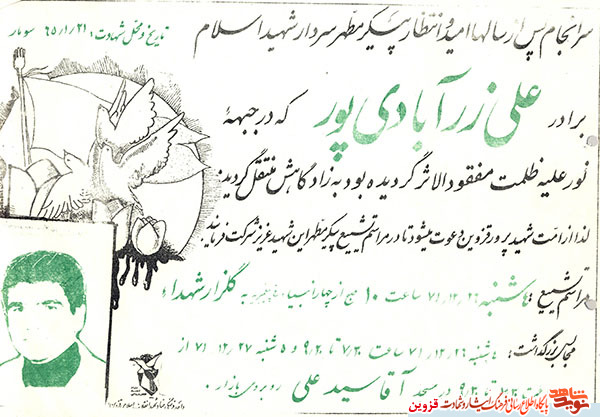 سرانجام پس از سالها امید و انتظار پیکر مطهر سردار شهید اسلام
تاریخ و محل شهادت: ۶۵/۱/۲۱ سومار
برادر علی زرآبادی پور که در جبههٔ
نور علیه ظلمت مفقودالاثر گردیده بود به زادگاهش منتقل گردید.
لذا از امت شهیدپرور قزوین دعوت میشود تا در مراسم تشییع پیکر مطهر این شهید عزیز شرکت فرمایند.
مراسم تشییع: ۷۱/۱۲/۲۶ ساعت ۱۰ صبح از چهارانبیاء به گلزار شهداء
مجالس بزرگداشت: ۷۱/۱۲/۲۶ ساعت ۷/۳۰ تا ۹/۳۰ و ۵ شنبه ۷۱/۱۲/۲۷ از
تا ۹/۳۰ در مسجد آقاسید علی روبروی بازار.
نوید شاهد
پایگاه اطلاع رسانی فرهنگ ایثار و شهادت قزوین